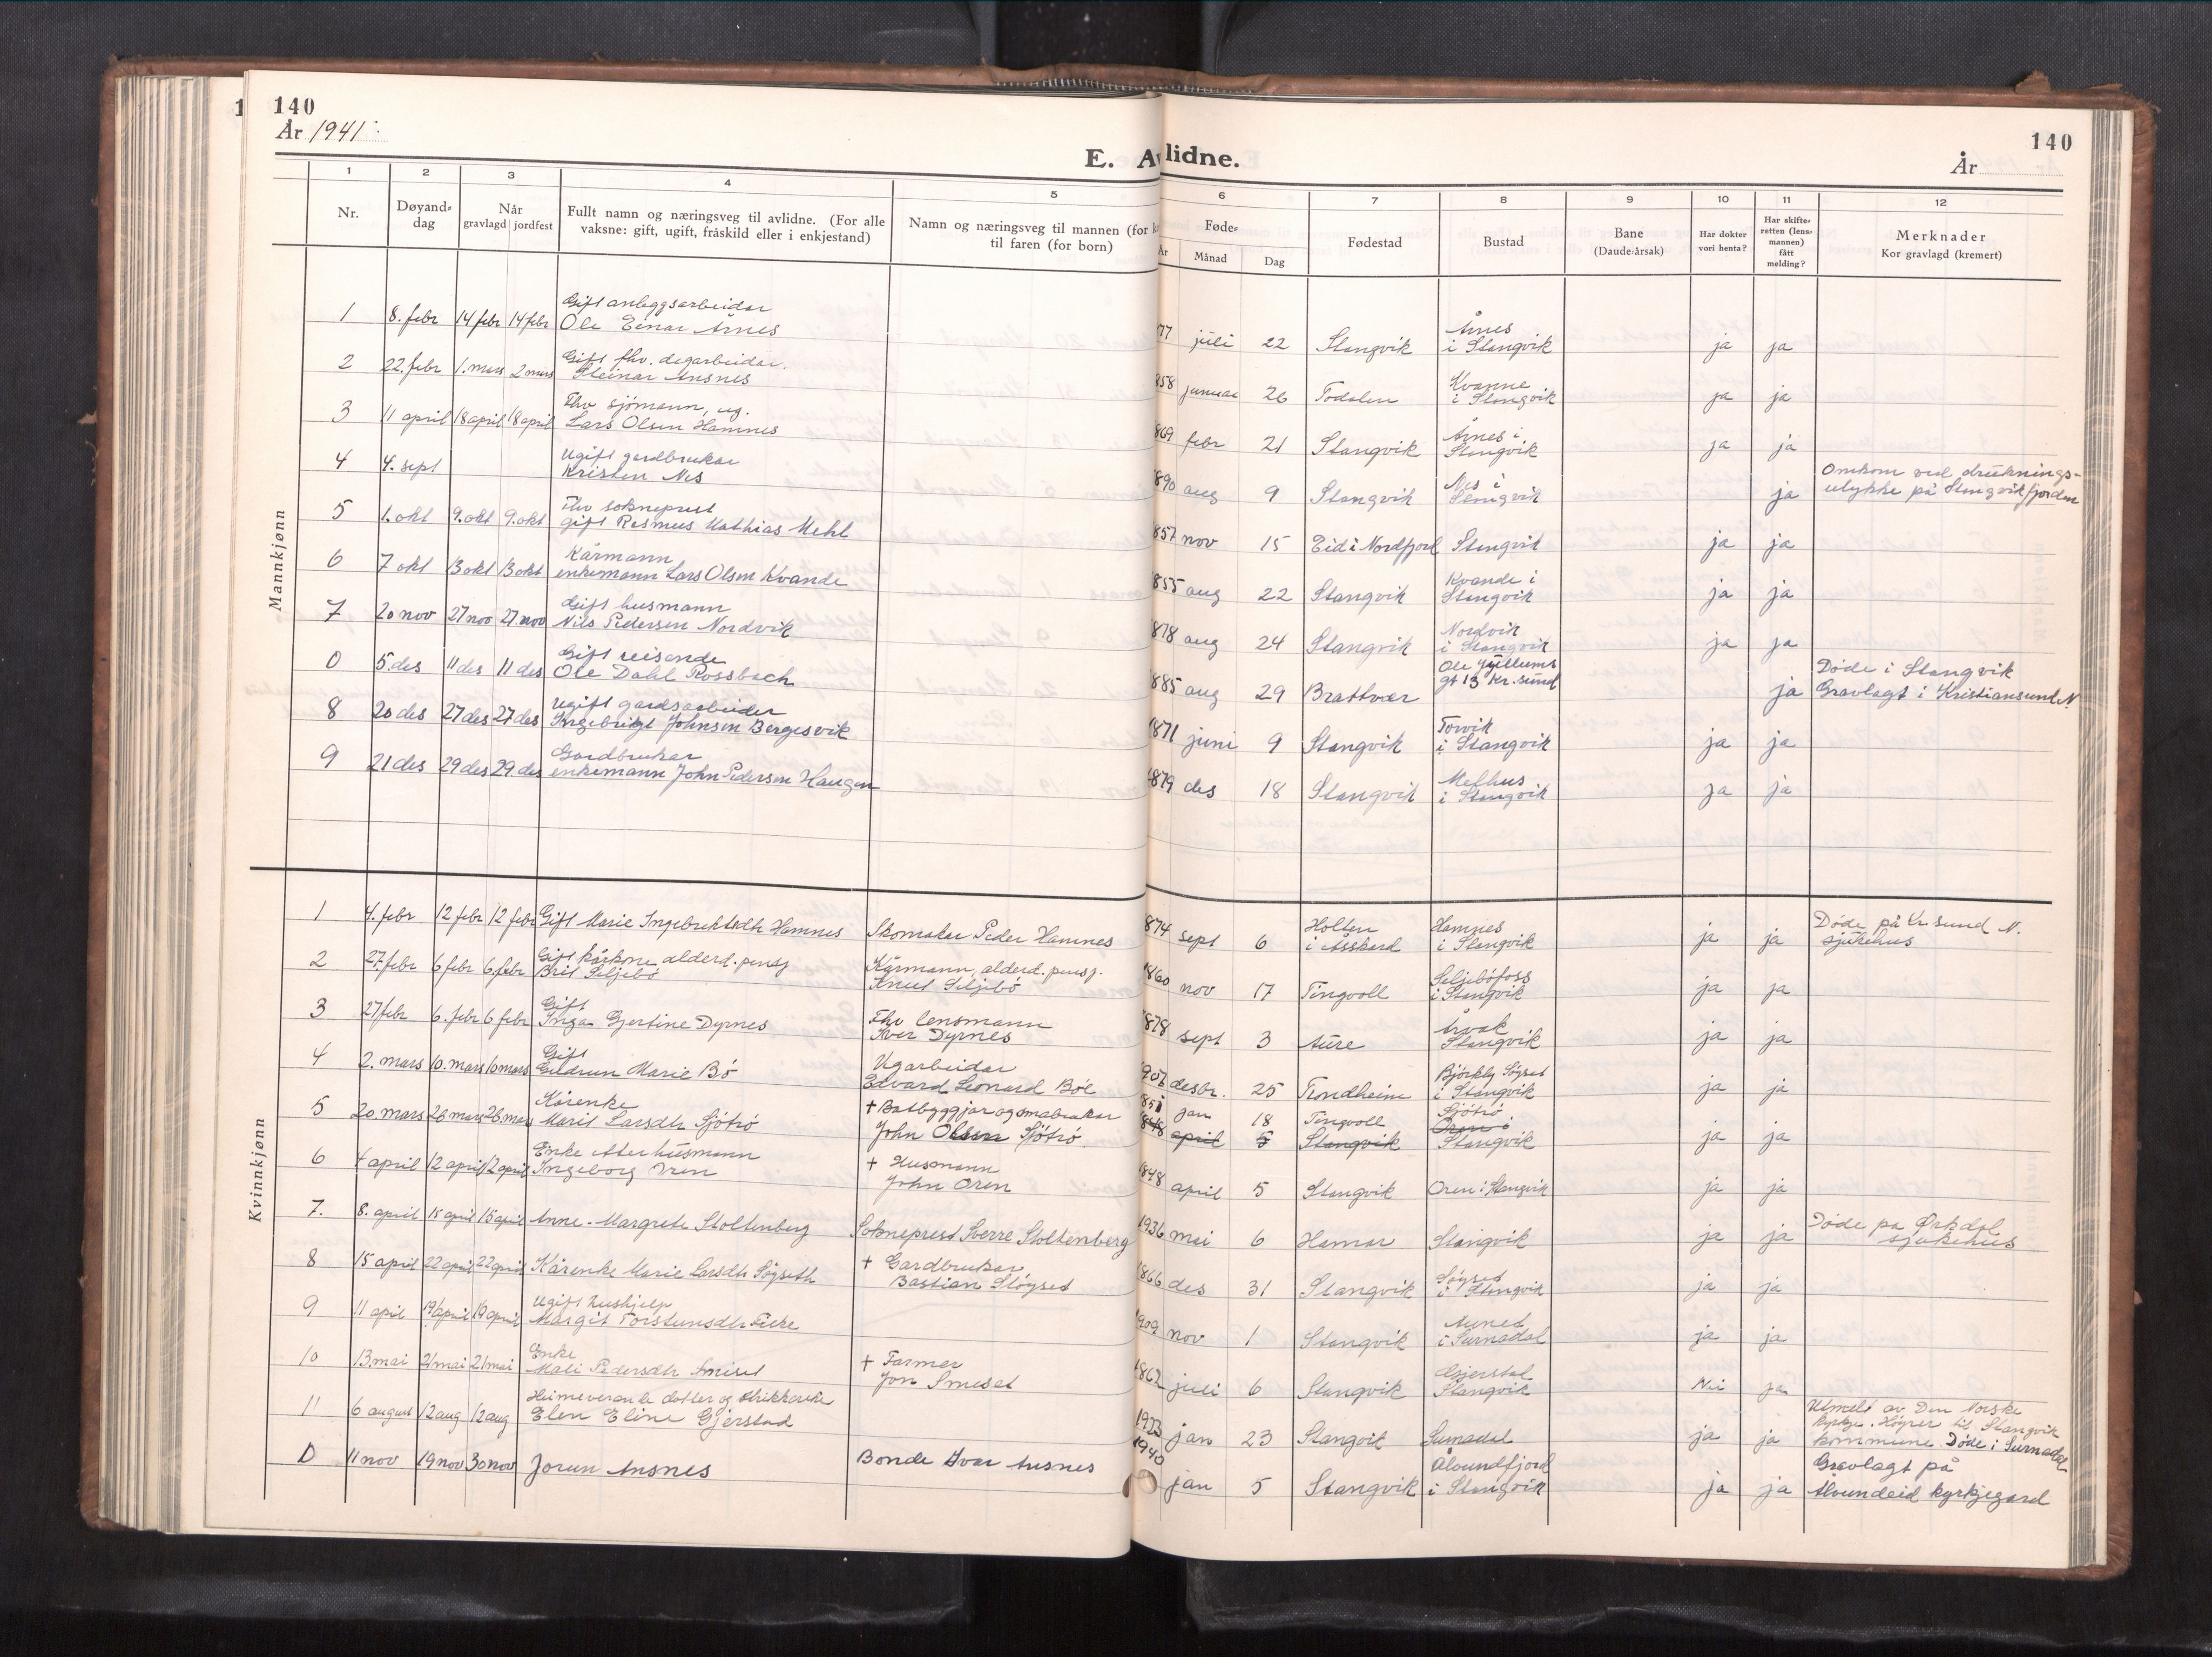 140
År 1941
E. Avlidne.
140
År
1 2 3 4 5 6 7 8 9 10 11 12
Nr.
Døyand-dag
Når gravlagd jordfest
Fullt namn og næringsveg til avlidne. (For alle vaksne: gift, ugift, fråskild eller i enkjestand)
Namn og næringsveg til mannen (for k
til faren (for born)
Føde-
År Månad Dag
Fødestad
Bustad
Bane (Daude-årsak)
Har dokter vori henta?
Har skifteretten (lensmannen) fått melding?
Merknader
Kor gravlagd (kremert)
Mannkjønn
1 8. febr 14 febr 14 febr Gift anleggsarbeidar Ole Einar Årnes 77 juli 22 Stangvik Årnes i Stangvik ja ja
2 22. febr 1. mars 2 mars Gift fhv. dagarbeidar. Steinar Ansnes 858 januar 26 Todalen Kvanne i Stangvik ja ja
3 11 april 18 april 18 april Fhv sjömann, ug. Lars Olsen Hamnes 869 febr 21 Stangvik Årnes i Stangvik ja ja
4 4. sept Ugift gardbrukar Kristen Nes 890 aug 9 Stangvik Nes i Stangvik ja Omkom ved drukningsulykke på Stangvikfjorden
5 1. okt 9. okt 9. okt Fhv sokneprest gift Rasmus Mathias Mehl 857 nov 15 Eid i Nordfjord Stangvik ja ja
6 7 okt 13 okt 13 okt Kårmann enkemann Lars Olsen Kvande 855 aug 22 Stangvik Kvande i Stangvik ja ja
7 20 nov 27 nov 27 nov Gift husmann Nils Pedersen Nordvik 878 aug 24 Stangvik Nordvik i Stangvik ja ja
0 5. des 11 des 11 des Gift reisende Ole Dahl Rossbach 885 aug 29 Brattvær Ole gt 13 Kr. sund ja Døde i Stangvik Gravlagt i Kristiansund N.
8 20 des 27 des 27 des Ugift gardsarbeider Ingebrigt Johnsen Bergesvik 1871 juni 9 Stangvik Torvik i Stangvik ja ja
9 21 des 29 des 29 des Gardbrukar enkemann John Pedersen Haugen 1879 des 18 Stangvik Melhus i Stangvik ja ja
Kvinnkjønn
1 4. febr 12 febr 12 febr Gift Marie Ingebrektsdtr Hamnes Skomakar Peder Hamnes 874 sept 6 Holten i Åsskard Hamnes i Stangvik ja ja Døde på Kr. sund N. sjukehus
2 27. febr 6 febr 6. febr Gift kårkone alderd. pensj Brit Seljebö Kårmann, alderd. pensj. Knut Seljebö 1860 nov 17 Tingvoll Seljeböfoss i Stangvik ja ja
3 27 febr 6. febr 6 febr Gift Inga Gjertine Dyrnes Fhv lensmann Iver Dyrnes 1878 sept 3 Aure Stangvik ja ja
4 2. mars 10. mars 10 mars Gift Gudrun Marie Bö Vgarbeidar Edvard Leonard Böe desbr. 25 Trondheim Björkly Søyset i Stangvik ja ja
5 20. mars 26 mars 26. mars Kårenke Marit Larsdtr Sjötrö + Båtbyggjar og småbrukar John Olsen Sjötrö 1851 jan 18 Tingvoll Sjötrö 1848 april 5 Stangvik Øren i Stangvik ja ja
6 4 april 12 april 12 april Enke etter husmann Ingeborg Øren + Husmann John Øren 1848 april 5 Stangvik Øren i Stangvik ja ja
7. 8. april 15 april 15 april Anne-Margrete Stoltenberg Sokneprest Sverre Stoltenberg 1936 mai 6 Hamar Stangvik ja ja Døde på Ørkdal sjukehus
8 15 april 22 april 22 april Kårenke Marie Larsdtr Søyseth + Gardbrukar Bastian Støyset 1866 des 31 Stangvik Søyset i Stangvik ja ja
9 11 april 19 april 19 april Ugift hushjelp Margit Torsteinsdtr Fiske 1909 nov 1 Stangvik Auned i Surnadal ja ja
10 13. mai 21 mai 21 mai Enke Mali Pedersdtr Smiset + Farmer Jon Smeset 1862 juli 6 Stangvik Gjerstal Stangvik Nei ja
11 6 august 12 aug 12 aug Heimeverande dotter og strikkerske Elen Eline Gjerstad 1923 jan 23 Stangvik Surnadal ja ja Utmeldt av Den Norske kyrkje. Høyrer til Stangvik kommune Døde i Surnadal
D 11 nov 19 nov 30 nov Jorun Ansnes Bonde Ivar Ansnes 1940 jan 5 Stangvik Ålvundfjord i Stangvik ja ja Gravlagt på Ålvundeid kyrkjegard